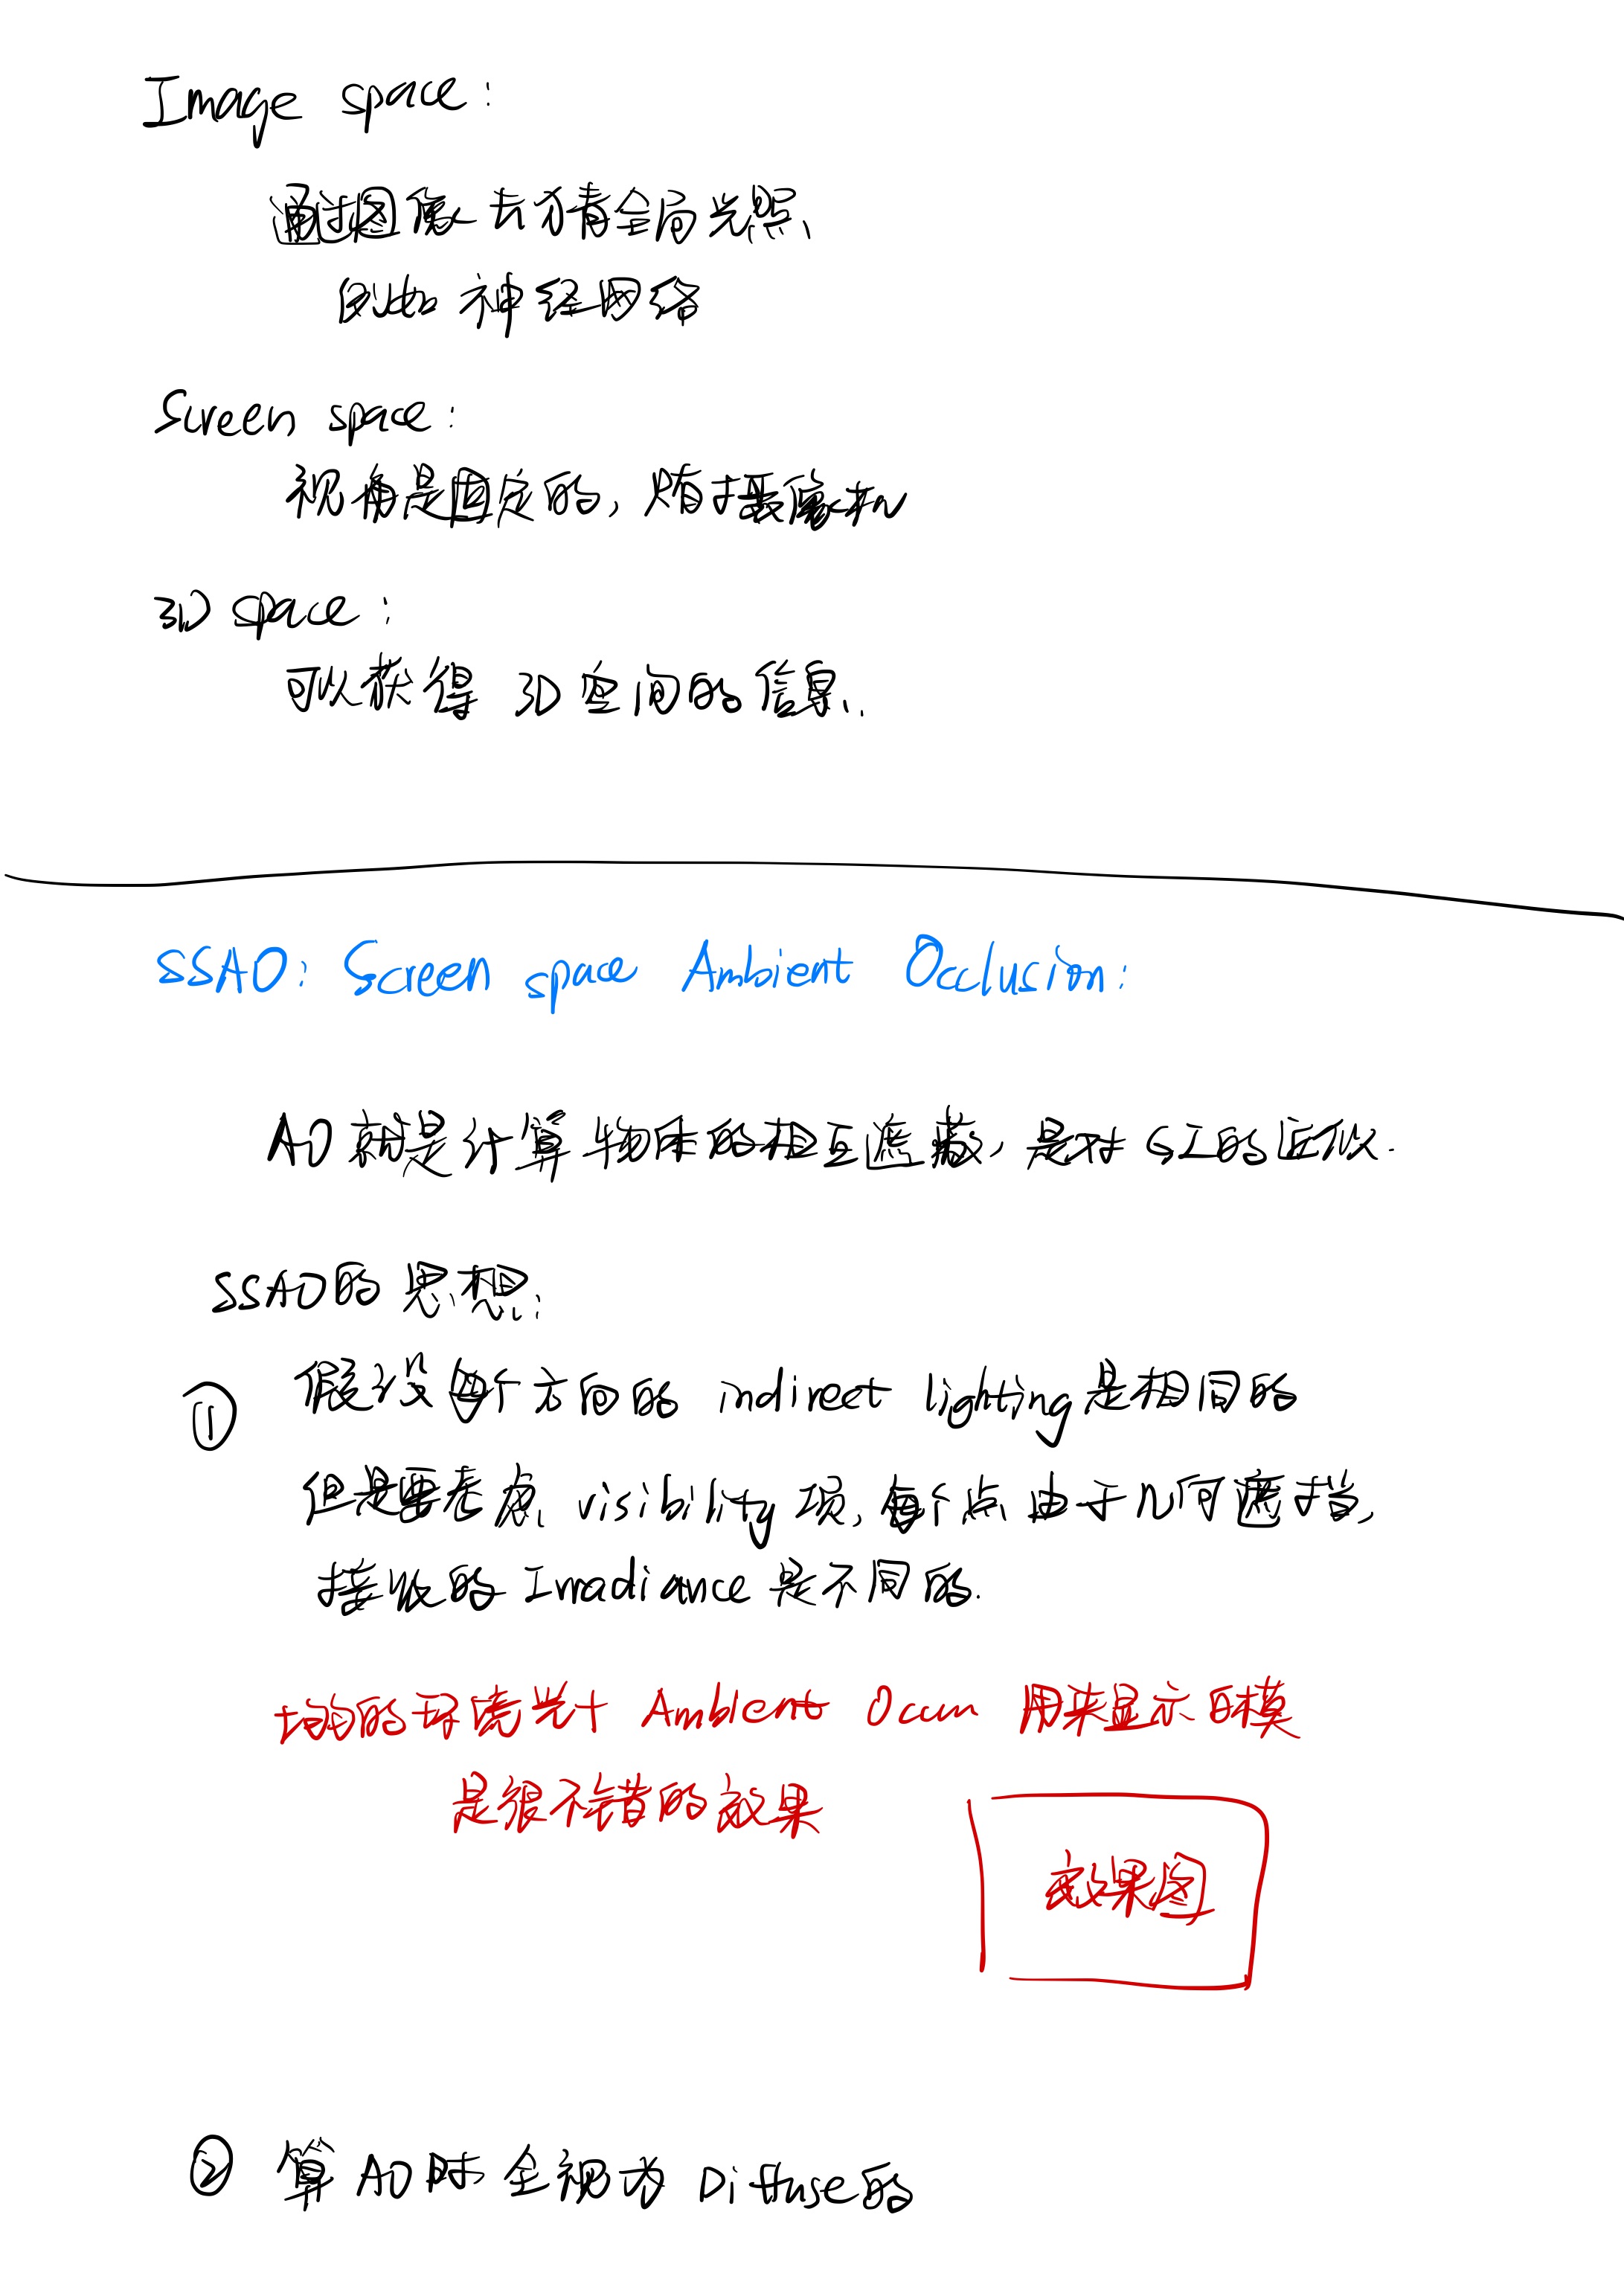 Image space:
通过图像去猜全局光照、
例如 神经网络
Screen space:
视角是固定的, 随摄像机
3D space:
可以获得 3D空间的信息.
SSAO: Screen space Ambient Occlusion:
AO就是计算物体的相互遮蔽, 是对GI的近似.
SSAO的思想:
① 假设每个方向的 indirect lighting是相同的
但是要考虑 visibility项, 每个点由于几何遮挡,
接收的 Irradiance是不同的.
均匀的环境光+ Ambient Occun 用来显示白模
是很不错的效果
效果图
② 算AO时全视为 Diffuse的